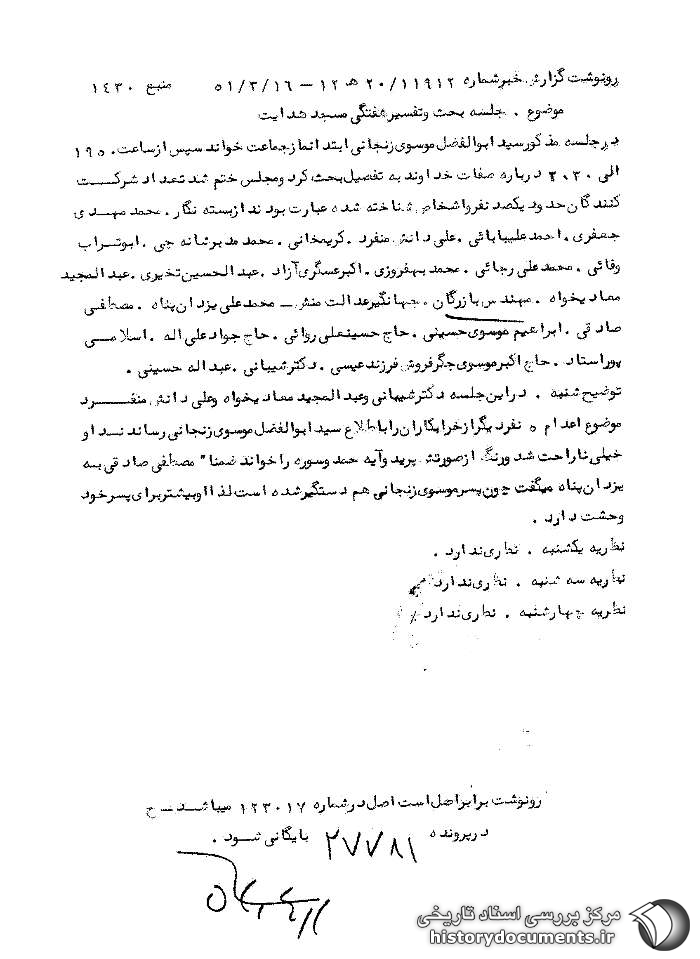 رونوشت گزارش خبر شماره ۲۰/۱۱۹۱۲ ه‍ ۱۲ – ۵۱/۳/۱۶ منبع ۱۴۳۰
موضوع . جلسه بحث و تفسیر هفتگی مسجد هدایت
در جلسه مذکور سید ابوالفضل موسوی زنجانی ابتدا نماز جماعت خواند سپس از ساعت
الی ۲۰۳۰ درباره صفات خداوند به تفصیل بحث کرد و مجلس ختم شد تعداد شرکت
کنندگان حدود یکصد نفر و اشخاص شناخته شده عبارت بودند از بسته نگار . محمد مهدی
جعفری . احمد علیبابائی . علی دانش منفرد . کریمخانی . محمد مدیر شانه چی . ابوتراب
وفائی . محمد علی رجائی . محمد بهفروزی . اکبر عسگری آزاد . عبدالحسین تخیری . عبدالمجید
معادیخواه . مهندس بازرگان . جهانگیر عدالت منش – محمد علی یزدان پناه . مصطفی
صادقی . ابراهیم موسوی حسینی . حاج حسینعلی روائی . حاج جواد علی اله . اسلامی
پور استاد . حاج اکبر موسوی جگرفروش فرزند عیسی . دکتر شیبانی . عبداله حسینی .
توضیح شنبه . در این جلسه دکتر شیبانی و عبدالمجید معادیخواه و علی دانش منفرد
موضوع اعدام ۵ نفر دیگر از خرابکاران را باطلاع سید ابوالفضل موسوی زنجانی رساندند او
خیلی ناراحت شد و رنگ از صورتش پرید و آیه حمد و سوره را خواند ضمنا" مصطفی صادقی به
یزدان پناه میگفت چون پسر موسوی زنجانی هم دستگیر شده است لذا او بیشتر برای پسر خود
وحشت دارد .
نظریه یکشنبه . نظری ندارد .
نظریه سه شنبه . نظری ندارد
نظریه چهارشنبه . نظری ندارد
رونوشت برابر اصل است اصل در شماره ۱۲۳۰۱۷ میباشد
در پرونده ۲۷۷۸۱ بایگانی شود .
مرکز بررسی اسناد تاریخی
historydocuments.ir